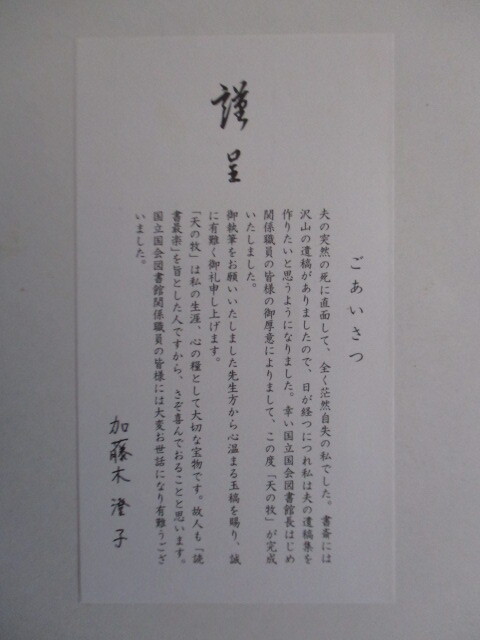 謹呈
ごあいさつ
夫の突然の死に直面して、全く茫然自失の私でした。書斎には
沢山の遺稿がありましたので、日が経つにつれ私は夫の遺稿集を
作りたいと思うようになりました。幸い国立国会図書館長はじめ
関係職員の皆様の御厚意によりまして、この度「天の牧」が完成
いたしました。
御執筆をお願いいたしました先生方から心温まる玉稿を賜り、誠
に有難く御礼申し上げます。
「天の牧」は私の生涯、心の糧として大切な宝物です。故人も「読
書最楽」を旨とした人ですから、さぞ喜んでおることと思います。
国立国会図書館関係職員の皆様には大変お世話になり有難うござ
いました。
加藤木澄子